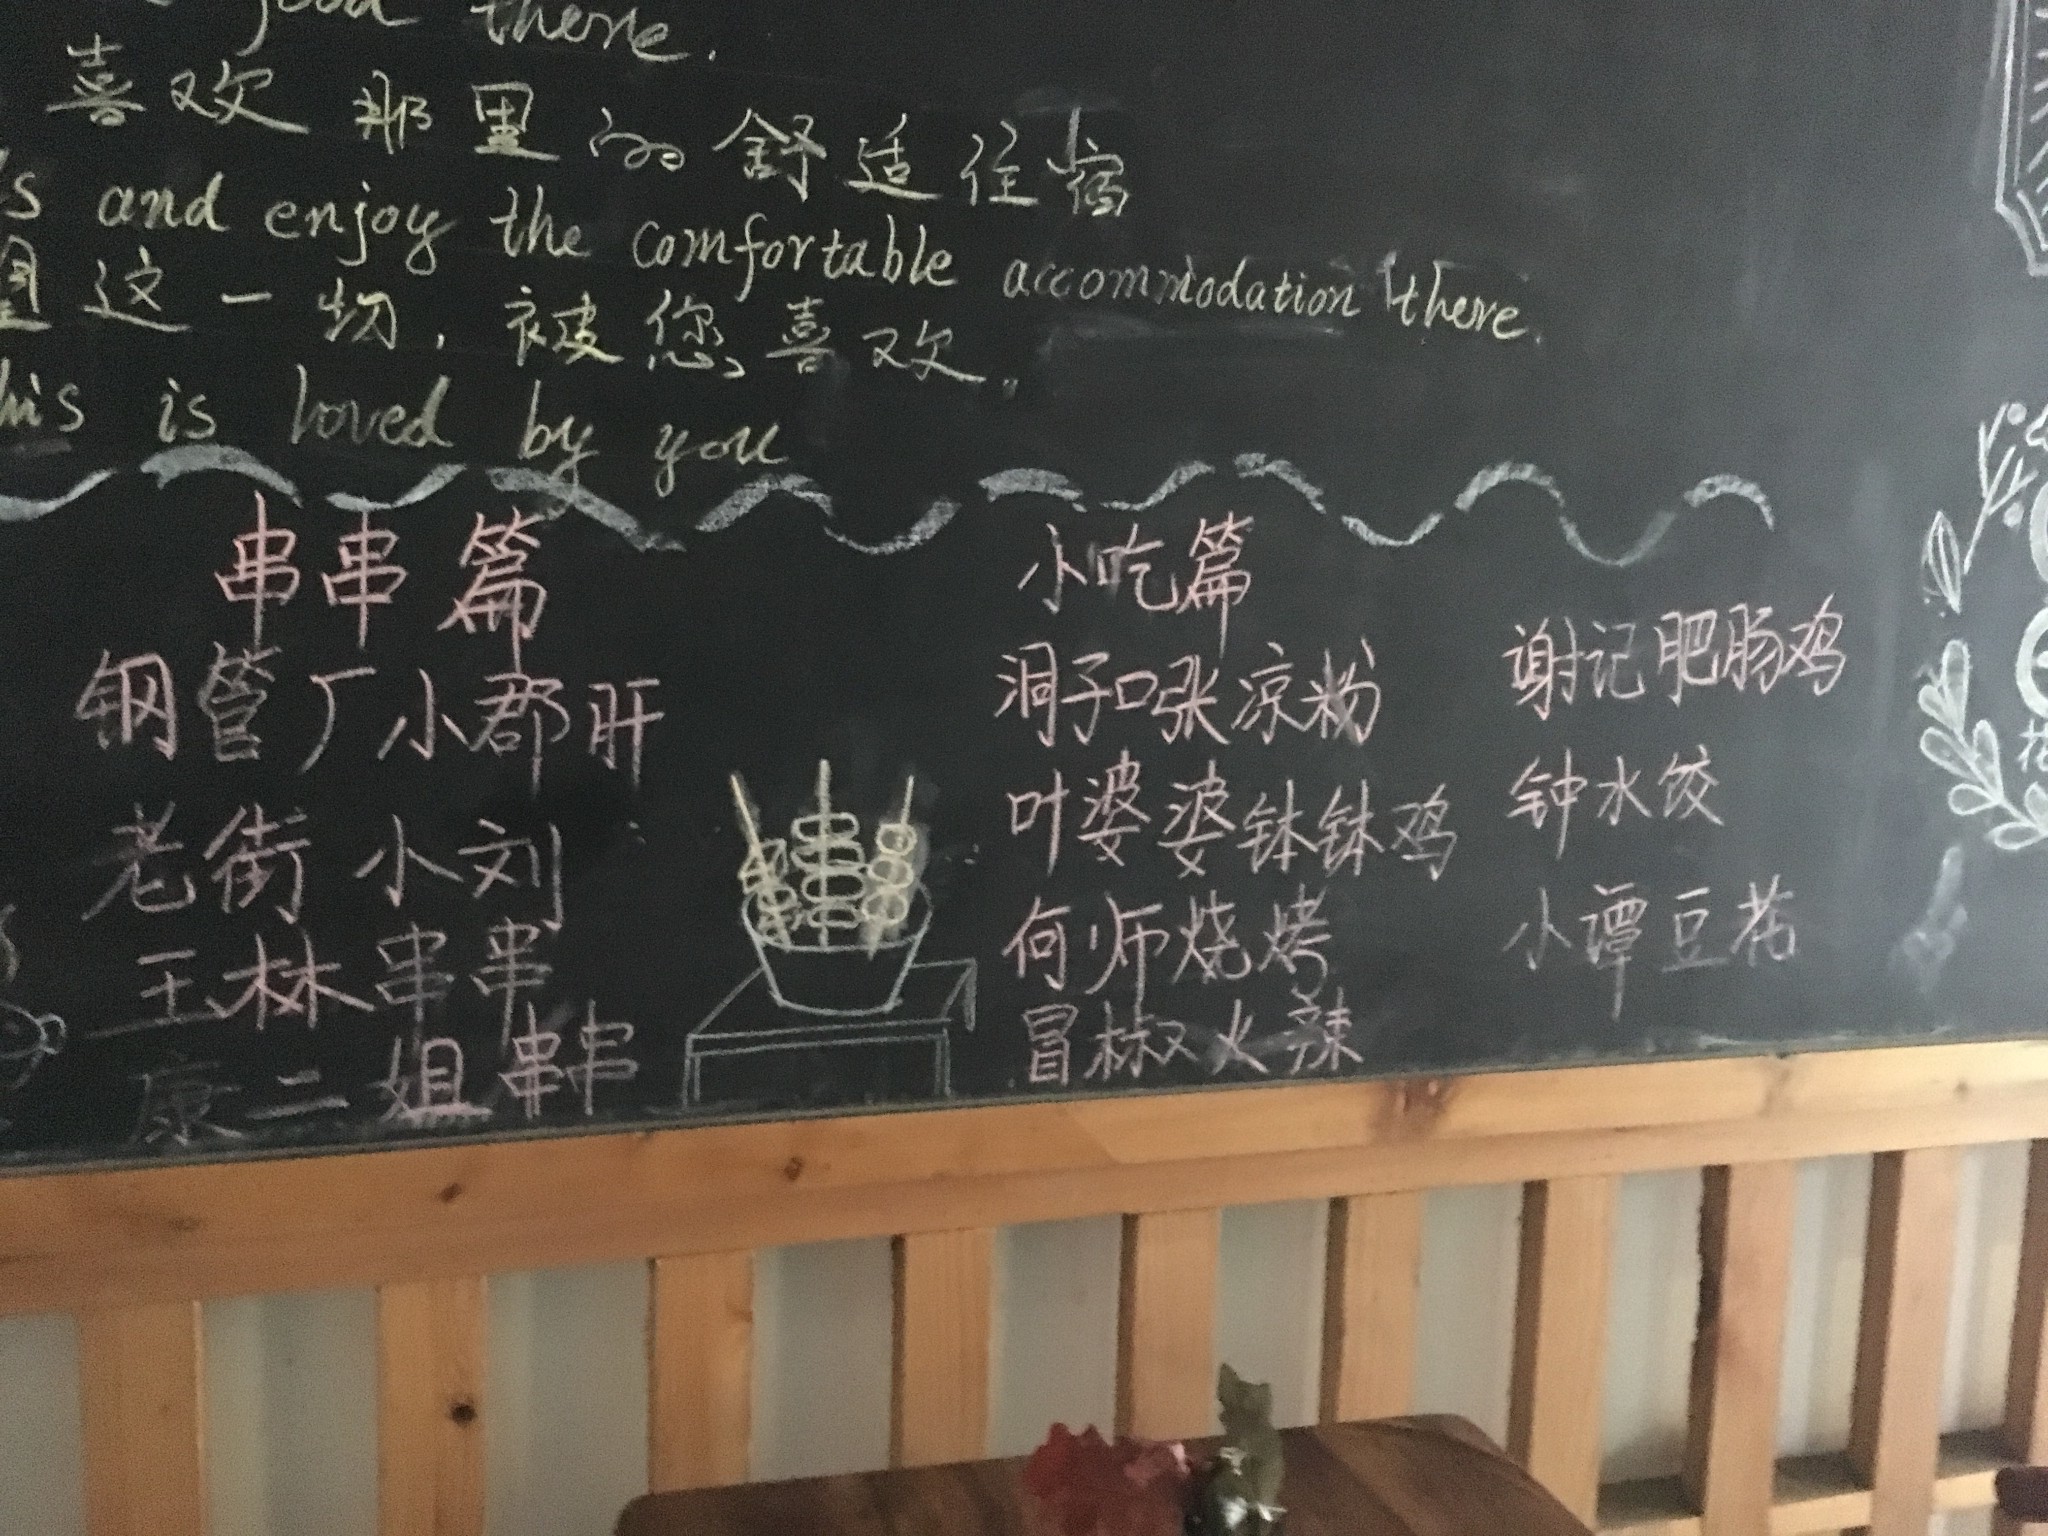 good there.
喜欢那里的舒适住宿
and enjoy the comfortable accommodation there.
这一物，被您喜欢。
is loved by you
串串篇
钢管厂小郡肝
老街小刘
王林串串
康二姐串串
小吃篇
洞子口张凉粉
叶婆婆钵钵鸡
何师烧烤
冒椒火辣
谢记肥肠鸡
钟水饺
小谭豆花